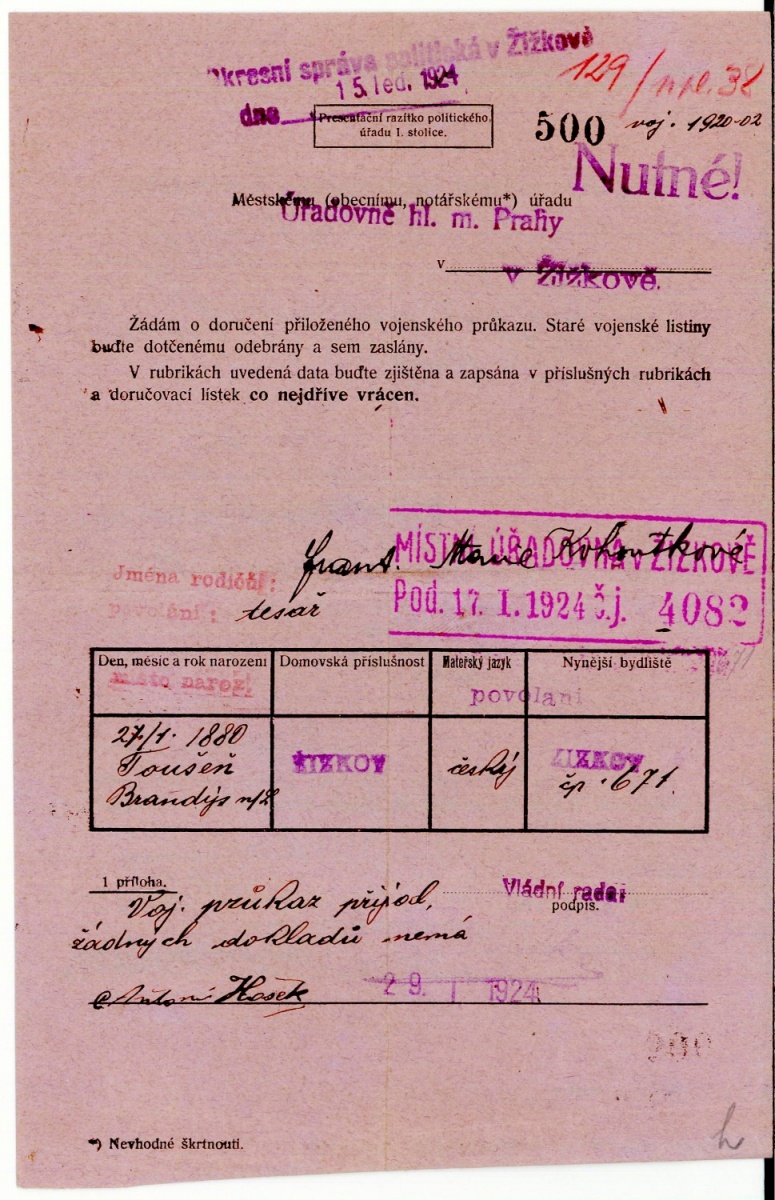 Okresní správa politická v Žižkově
15. led. 1924
dne
129/
Presentační razítko politického
úřadu I. stolice.
500
voj. 1920-02
Nutné!
Městskému (obecnímu, notářskému*) úřadu
Úřadovně hl. m. Prahy
v
v Žižkově.
Žádám o doručení přiloženého vojenského průkazu. Staré vojenské listiny
buďte dotčenému odebrány a sem zaslány.
V rubrikách uvedená data buďte zjištěna a zapsána v příslušných rubrikách
a doručovací lístek co nejdříve vrácen.
MÍSTNÍ ÚŘADOVNA V ŽIŽKOVĚ
Pod. 17. I. 1924 č.j. 4082
Jména rodičů: Frant. Marie Kohoutkové
povolání: tesař
Den, měsíc a rok narození
místo naroz.
Domovská příslušnost
Mateřský jazyk
Nynější bydliště
povolani
27/1. 1880
Toušeň
Brandýs n/L
ŽIZKOV
český
ŽIZKOV
čp. 671.
1 příloha.
Vládní rada:
podpis.
Voj. průkaz přijod,
žádných dokladů nemá
Antoni Hošek
29. I 1924
*) Nevhodné škrtnouti.
h